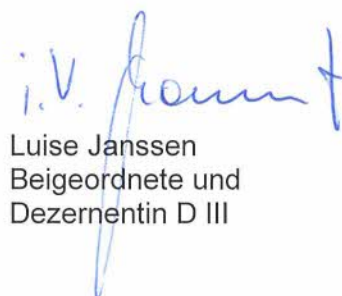 i.V.
Luise Janssen
Beigeordnete und
Dezernentin D III